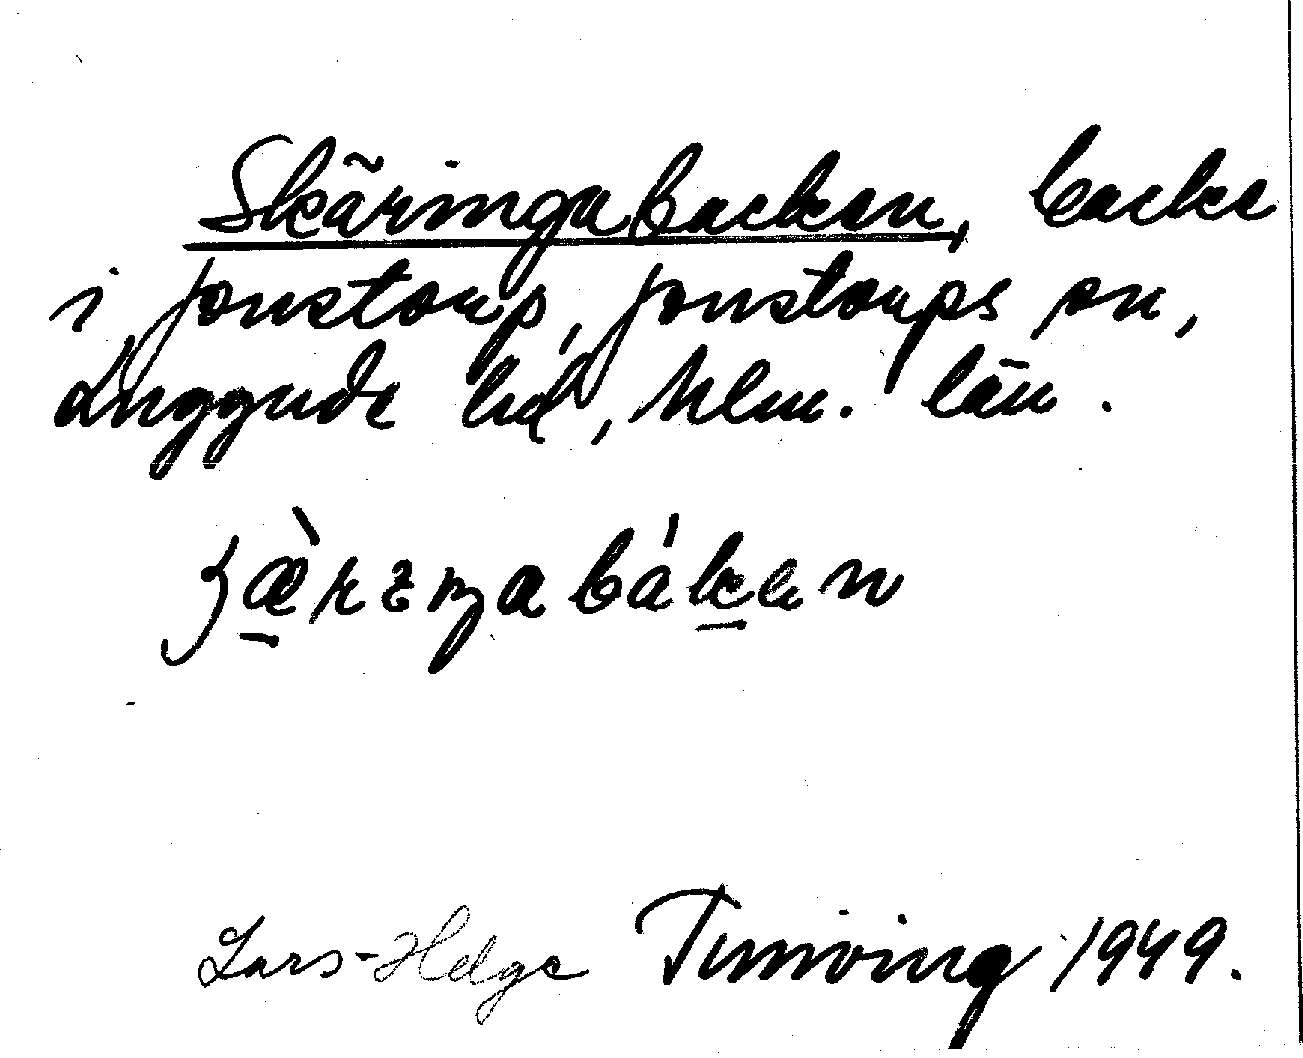 Skäringabacken, backe
i Jonstorp, Jonstorps sn,
Luggude hd, Mlm. län.
Lars-Helge Tunving 1949.